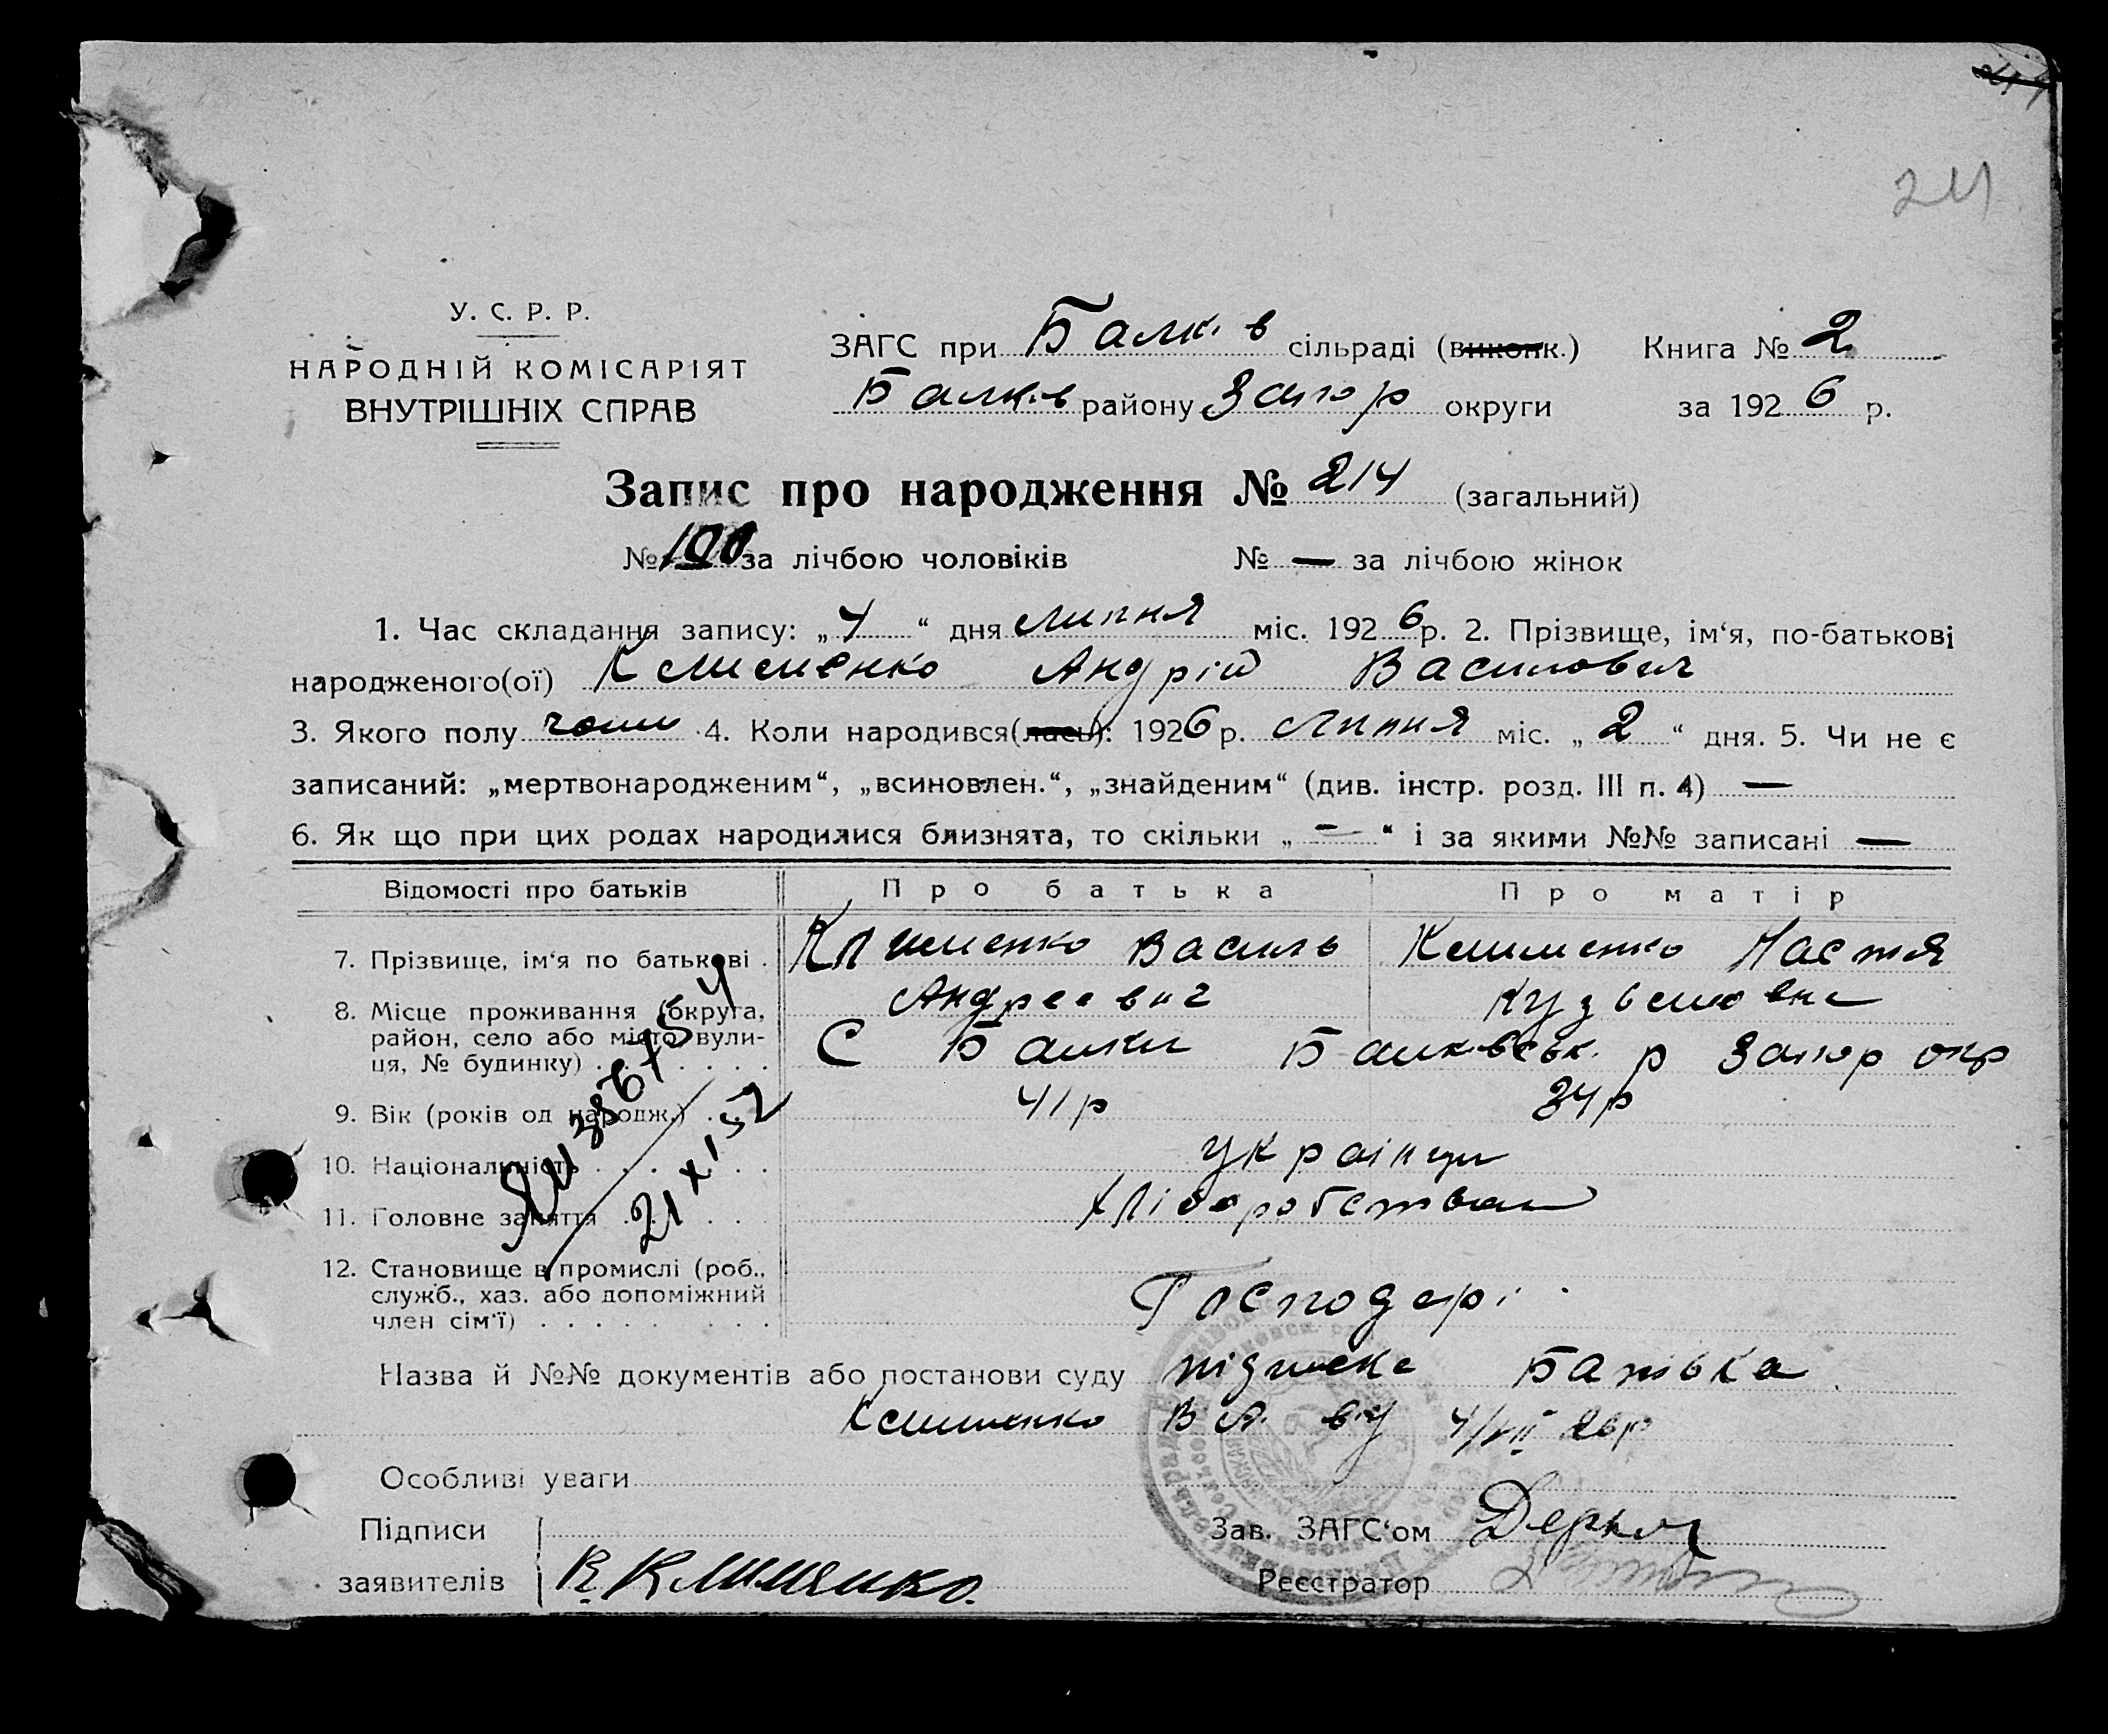 214
У. С. Р. Р.
НАРОДНІЙ КОМІСАРІЯТ
ВНУТРІШНІХ СПРАВ
ЗАГС при Балків сільраді (виконк.) Книга № 2
Балків району Запор округи за 1926 р.
Запис про народження № 214 (загальний)
№ за лічбою чоловіків № — за лічбою жінок
1. Час складання запису: „4“ дня липня міс. 1926 р. 2. Прізвище, ім‘я, по-батькові
народженого(ої) Клименко Андрій Василович
3. Якого полу чол 4. Коли народився(лась): 1926 р. Липня міс. „2“ дня. 5. Чи не є
записаний: „мертвонародженим“, „всиновлен.“, „знайденим“ (див. інстр. розд. III п. 4) —
6. Як що при цих родах народилися близнята, то скільки „ — “ і за якими №№ записані —
Відомості про батьків Про батька Про матір
7. Прізвище, ім‘я по батькові . Клименко Василь Клименко Настя
Андреевич Кузьмовна
8. Місце проживання (округа,
район, село або місто, вули-
ця, № будинку) . . . . . . . С Балки Балківськ. р Запор окр
9. Вік (років од народж.) . . . 41р 34р
10. Національність . . . . . . українци
11. Головне заняття . . . . . хліборобства
12. Становище в промислі (роб.,
служб., хаз. або допоміжний
член сім‘ї) . . . . . . . . . Господарі
21 XI 52
Назва й №№ документів або постанови суду підписка Батька
Клименко В А. від 4/VII 26р
Особливі уваги
Підписи
заявителів В. Клименко.
Зав. ЗАГС‘ом
Реєстратор